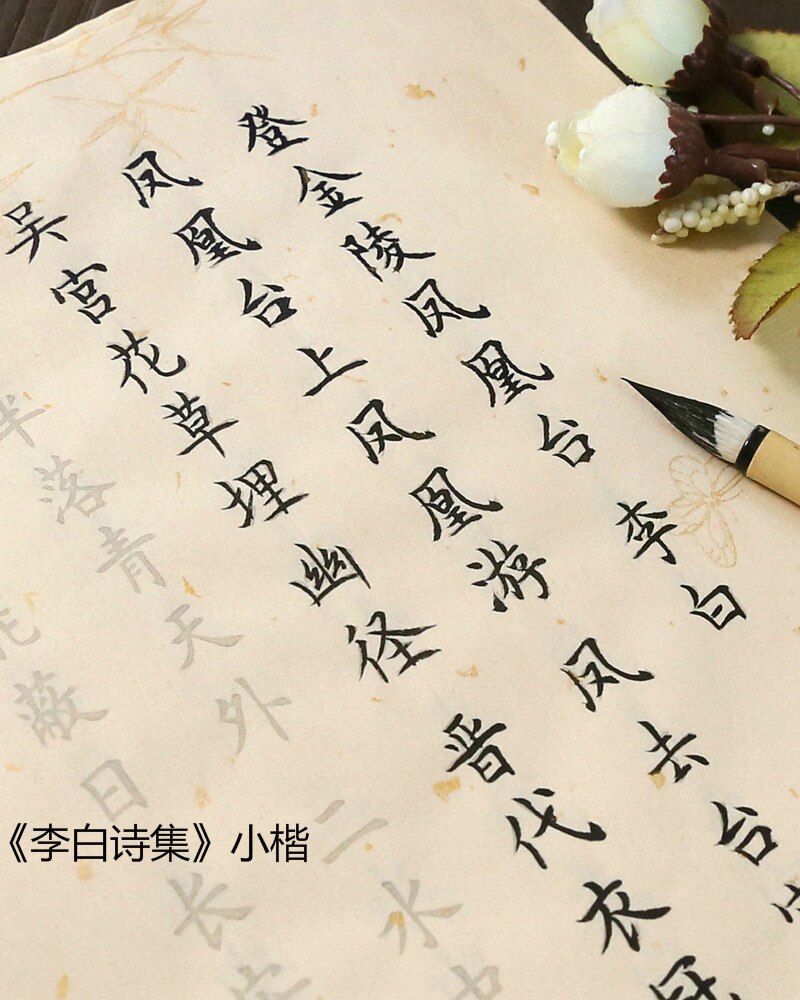 登金陵凤凰台 李白
凤凰台上凤凰游 凤去台
吴宫花草埋幽径 晋代衣冠
半落青天外 二水中
蔽日 长安
《李白诗集》小楷